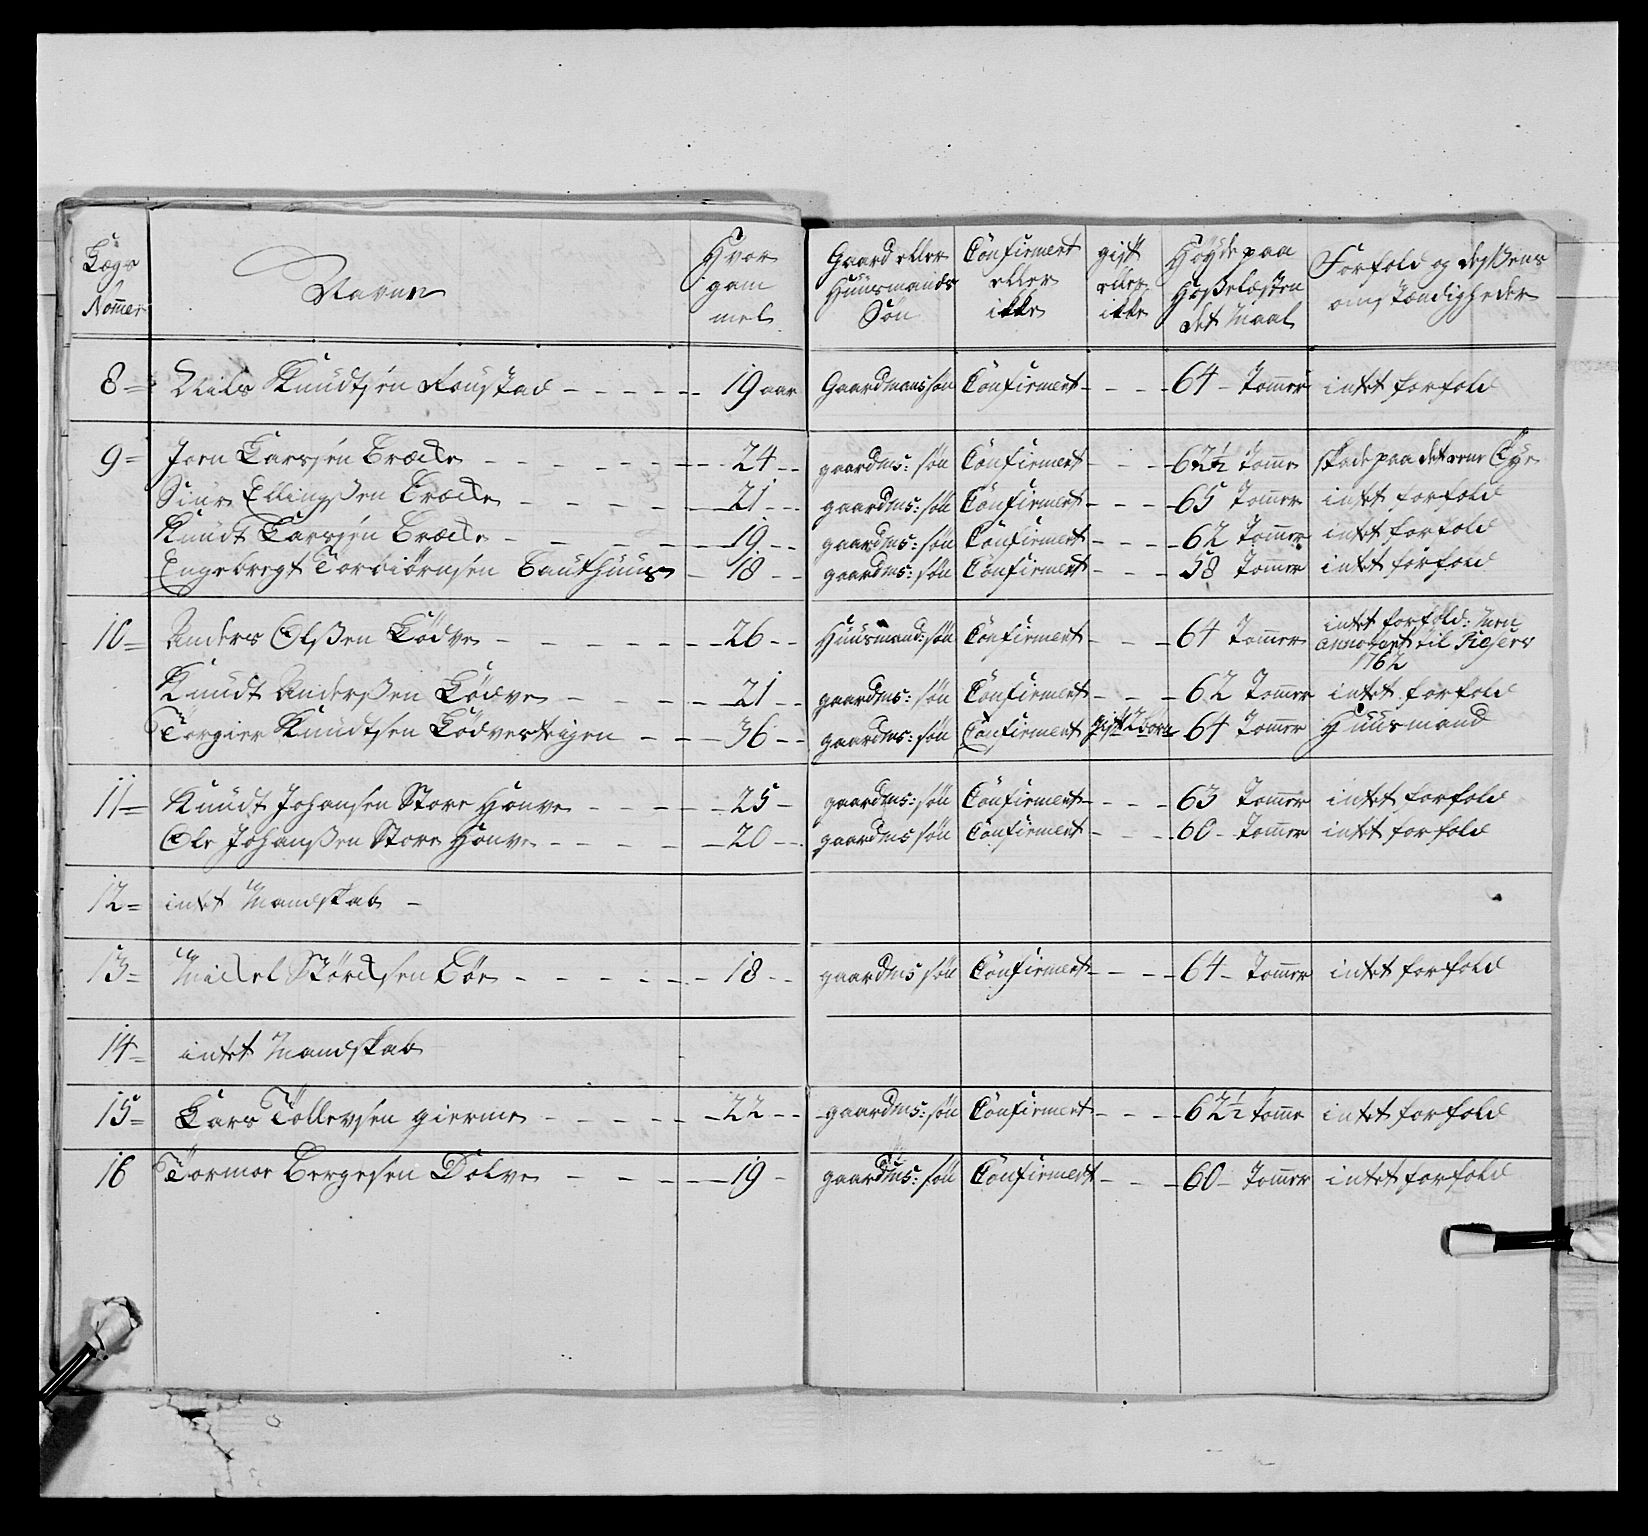 Lægs Nomer | Navne | Hvor gammel | Gaard eller Huusmands Søn | Confirmert eller ikke | gift eller ikke | Høyde paa Hoßelæsten det Maal | Forfald og deßens omstændigheder
8 = Niels Knudtsen Rongstad - - - - - 19 aar | Gaardmanssøn | Confirmert - - - 64 - Tommer | intet forfald
9 = Joen Larssen Bræcke - - - - - 24 - - | gaardms: søn | Confirmert - - - 62½ Tomme | skade paa det eene Øye
Siur Ellingßen Bræcke - - - - - 21 - - | gaardms: søn | Confirmert - - - 65 Tommer | intet forfald
Knudt Larssen Bræcke - - - - - 19 - - | gaardms: søn | Confirmert - - - 62 Tommer | intet forfald
Engebregt Torbiørnsen Bauthuus - 18 - - | gaardms: søn | Confirmert - - - 58 Tommer | intet forfald
10 = Anders Olßen Lødve - - - - - 26 - - | Huusmand: søn | Confirmert - - - 64 Tommer | intet forfald: Men annotert til Reserv 1762
Knudt Anderßen Lødve - - - - 21 - - | gaardms: søn | Confirmert - - - 62 Tommer | intet forfald
Torgier Knudtsen Lødvesteigen - - - 36 - - | gaardms: søn | Confirmert | gift 2 born | 64 Tommer | Huusmand
11 = Knudt Johansen Store Honve - - - - 25 - | gaardms: søn | Confirmert - - - 63 Tommer | intet forfald
Ole Johanßen Store Honve - - - - - 20 - - | gaardms søn | Confirmert - - - 60 - Tommer | intet forfald
12 = intet Mandskab -
13 = Mickel Størcksen Bøe - - - - - 18 - - | gaardms søn | Confirmert - - - 64 - Tommer | intet forfald
14 = intet Mandskab
15 = Lars Tollevsen gierme - - - - 22 - - | gaardms: søn | Confirmert - - - 62½ Tomme | intet forfald
16 Tormoe Bergesen Dolve - - - - 19 - | gaardms: søn | Confirmert - - - 60 - Tommer | intet forfald